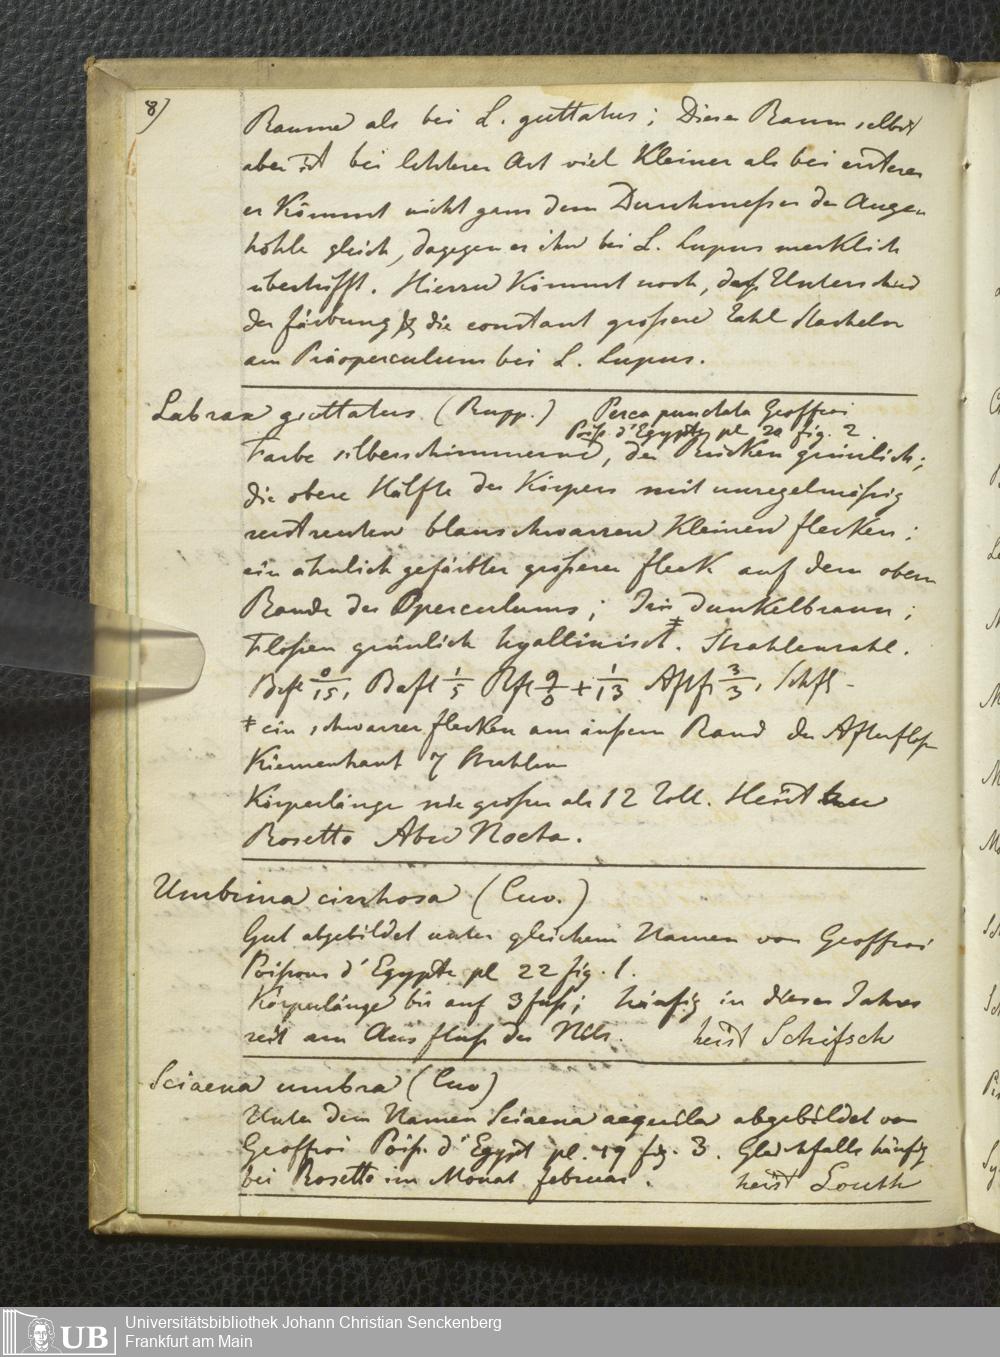 8)
Raume als bei L. guttatus; Dieser Raum selbst
aber ist bei letzterer Art viel kleiner als bei ersterer
er kömmt nicht ganz dem Durchmeßer der Augen
höhle gleich, dagegen er ihn bei L. Lupus merklich
übertrifft. Hierzu kömmt noch, daß Unterschied
der färbung & die constant großere Zahl Stacheln
am Präoperculum bei L. Lupus.
Labrax guttatus (Rupp.) Perca punctata Geoffroi
Poiß. d'Egypte pl 20 fig. 2.
Farbe silberschimmernd, der Rücken grünlich;
die obere Hälfte des Körpers mit unregelmäßig
zerstreuten blauschwarzen kleinen flecken;
ein ähnlich gefärbter großerer fleck auf dem obern
Rande des Operculums; Iris dunkelbraun;
Floßen grünlich hyallinisch ‡. Strahlenzahl.
Brfl 0/15, Bafl 1/5 Rfl 9/0 + 1/13 Aftfl 3/3, Schfl -
‡ ein schwarzer flecken am äußern Rand der Afterfloße
Kiemenhaut 7 Strahlen
Körperlänge nie großer als 12 Zoll. Heist
Rosetto Abu Nocta.
Umbrina cirrhosa (Cuv.)
Gut abgebildet unter gleichem Namen von Geoffroi
Poißons d'Egypte pl 22 fig. 1.
Körperlänge bis auf 3 fuß; häufig in dieser Jahres
zeit am Ausfluß des Nils. heist Schifsch
Sciaena umbra (Cuv)
Unter dem Namen Sciaena aequila abgebildet von
Geoffroi Poiß. d'Egypt pl. 19 fig. 3. Gleichfalls häufig
bei Rosetto im Monat februar. heist Louth
UB
Universitätsbibliothek Johann Christian Senckenberg
Frankfurt am Main